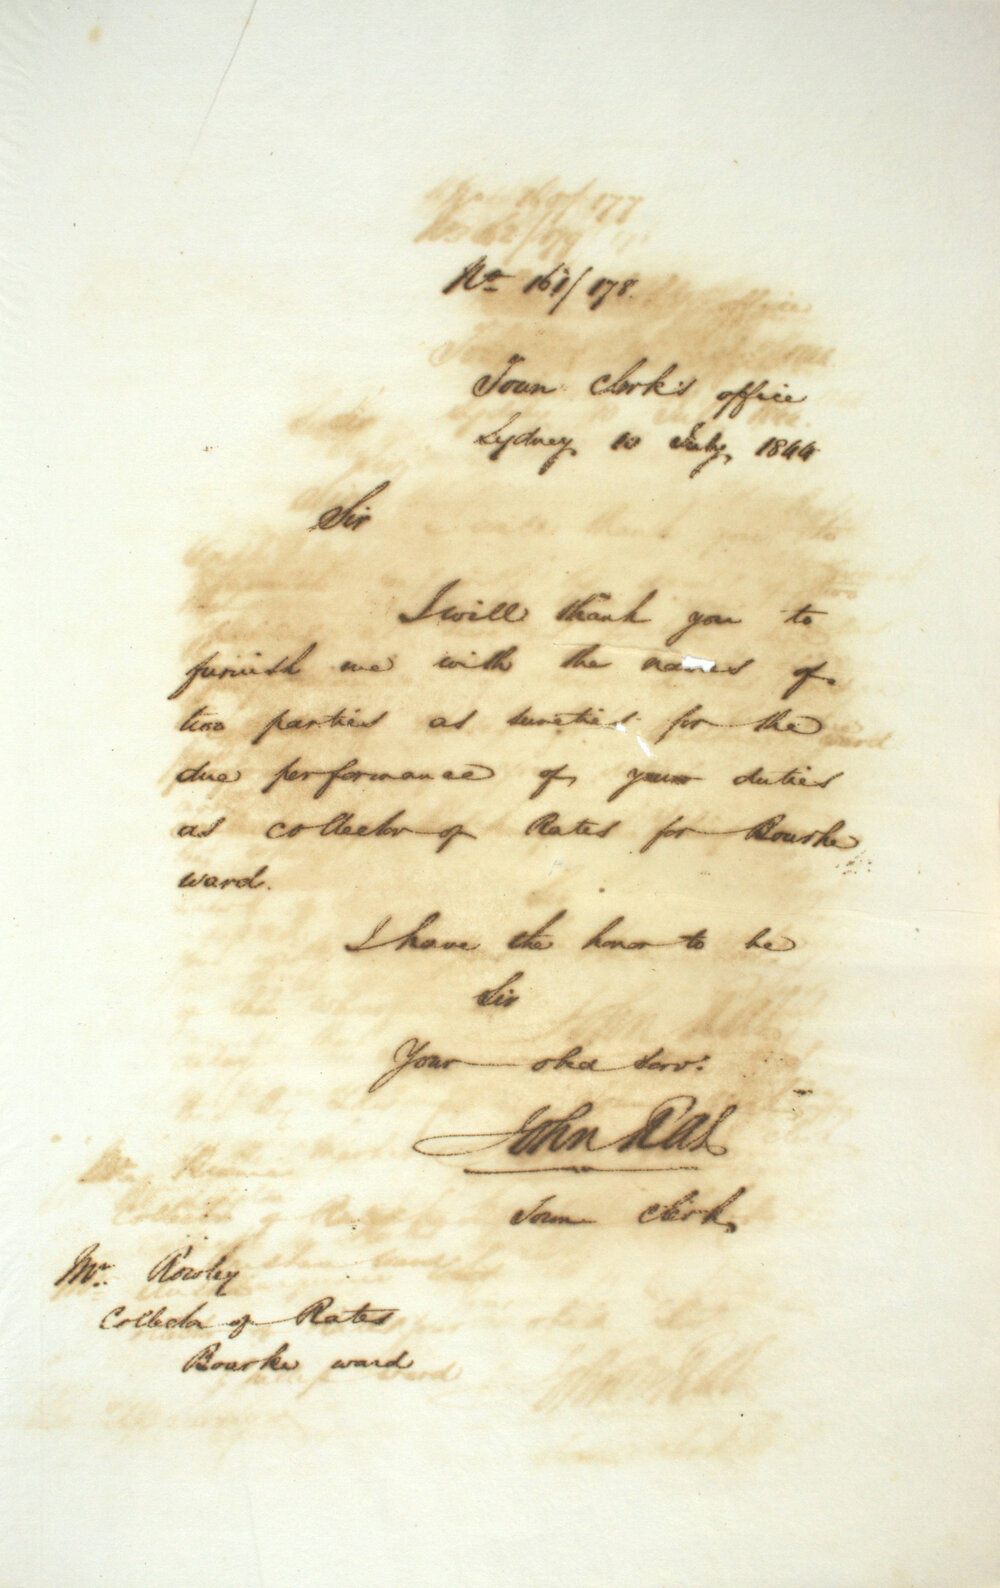 No 161/178.
Town Clerk's office
Sydney 10 July, 1844
Sir
I will thank you to
furnish me with the names of
two parties as sureties for the
due performance of your duties
as collector of Rates for Bourke
ward.
I have the honor to be
Sir
Your obed serv.
John Rae
Town Clerk,
Mr. Rowley
Collector of Rates
Bourke ward